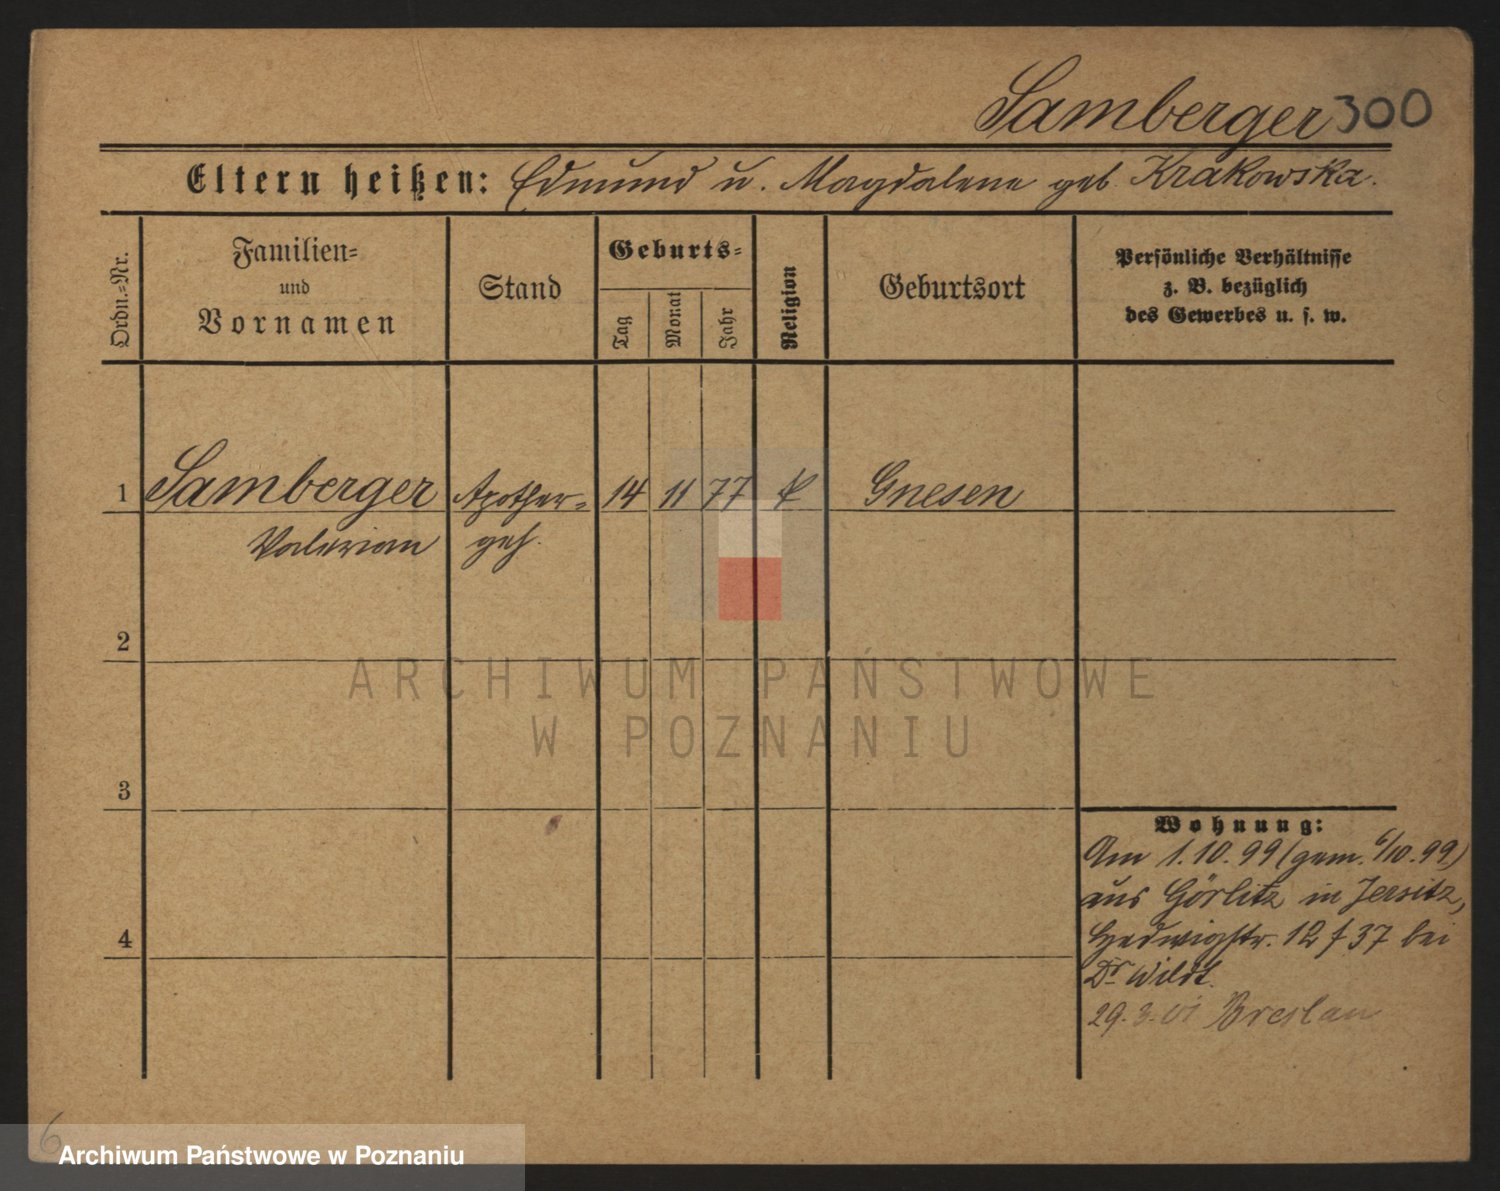 Samberger 300
Eltern heißen: Edmund u. Magdalena geb. Krakowska.
Ordn.=Nr.
Familien=
und
Vornamen
Stand
Geburts=
Tag
Monat
Jahr
Religion
Geburtsort
Persönliche Verhältnisse
z. B. bezüglich
des Gewerbes u. s. w.
1 Samberger Apother= 14 11 77 k Gnesen
Valerian geh.
2
3
4
Wohnung:
Am 1.10.99 (gem. 6/10.99)
aus Görlitz in Jersitz,
Hedwigstr. 12 f 37 bei
Dr Wildt.
29.3.01 Breslau
6
ARCHIWUM PAŃSTWOWE
W POZNANIU
Archiwum Państwowe w Poznaniu